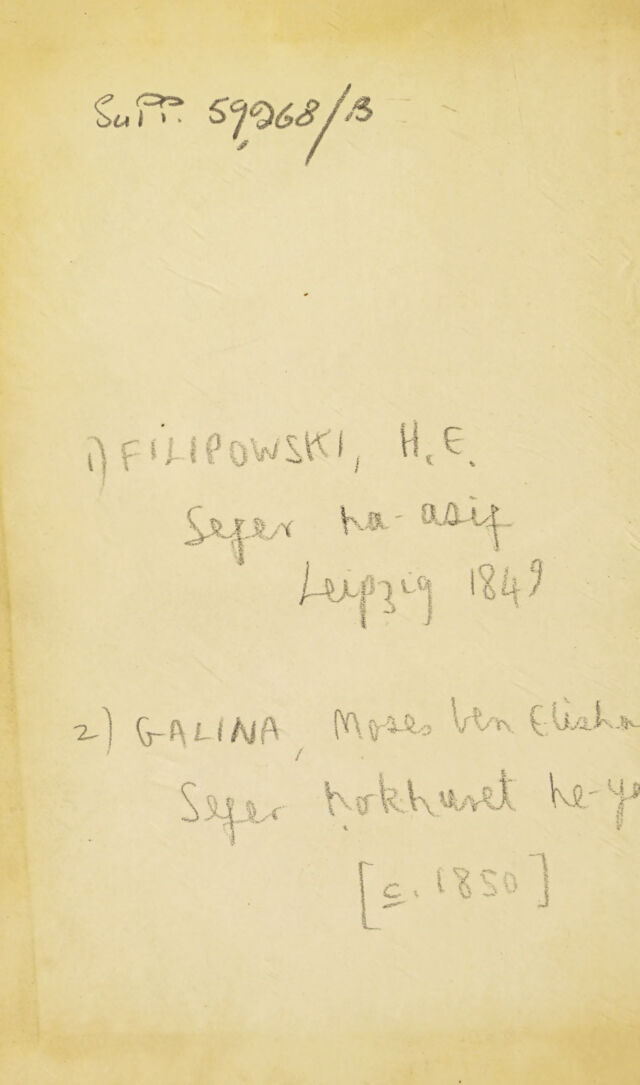 Supp. 59,268/B
1) FILIPOWSKI, H.E.
Sefer ha-asif
Leipzig 1849
2) GALINA, Moses ben Elisha
Sefer
[c. 1850]